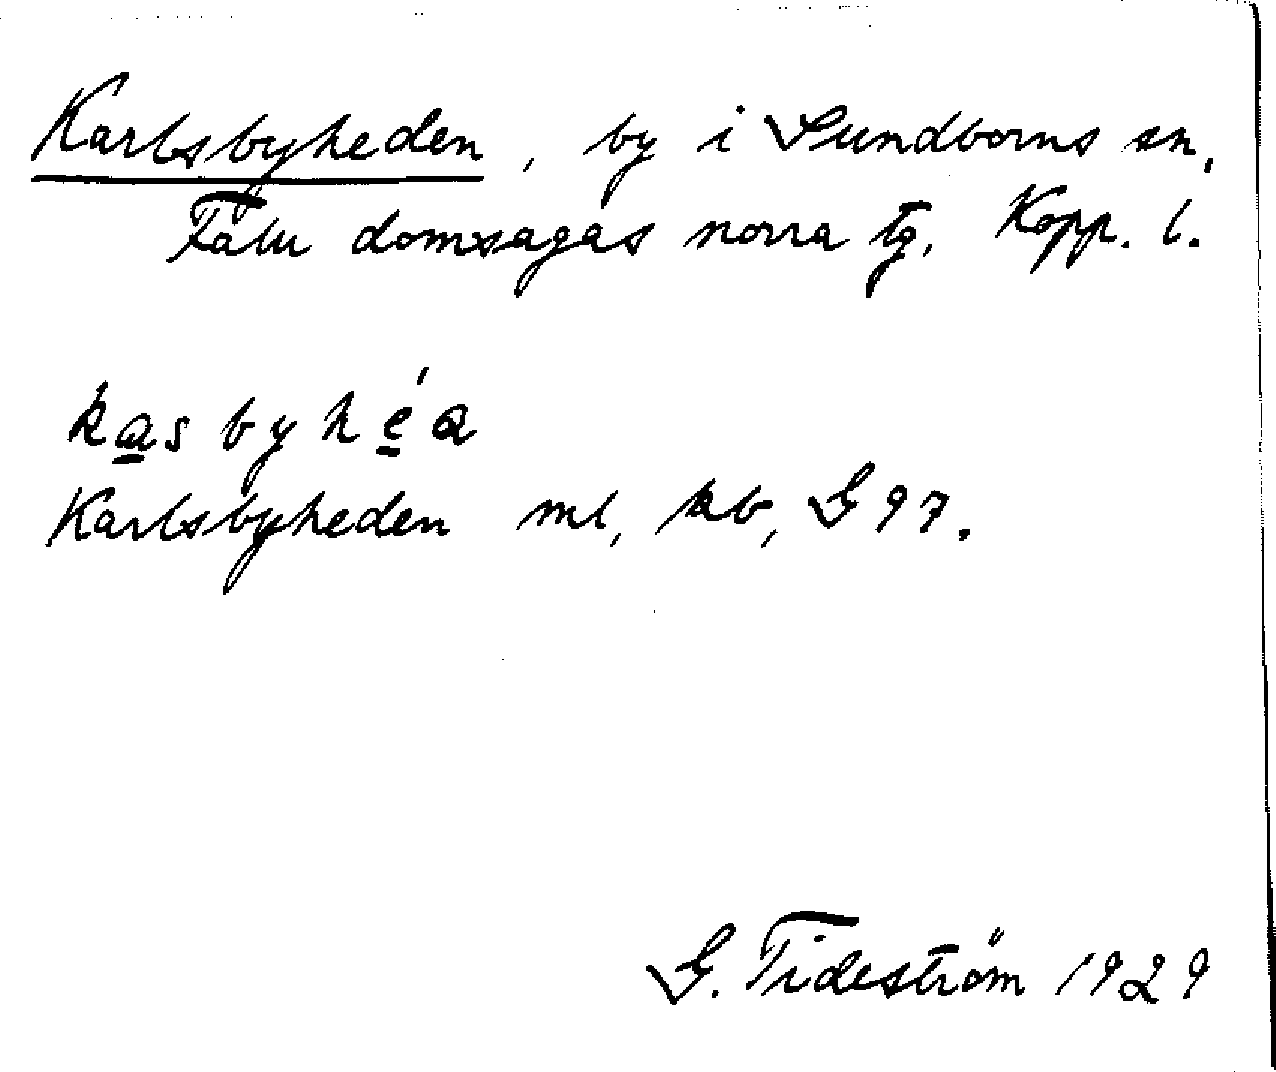 Karlsbyheden, by i Sundborns sn,
Falu domsagas norra tg, Kopp. l.
kasbyhéa
Karlsbyheden ml, kb, G 97.
G. Tideström 1929